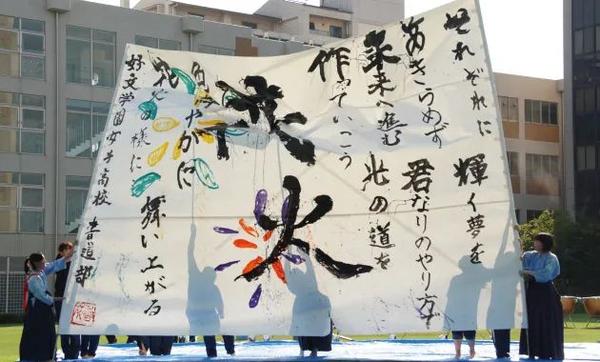 それぞれに 輝く夢を
あきらめず 君なりのやり方で
未来へ進む 此の道を
作っていこう
火
色あざやかに
様に 舞い上がる
好文学園女子高校 書道部